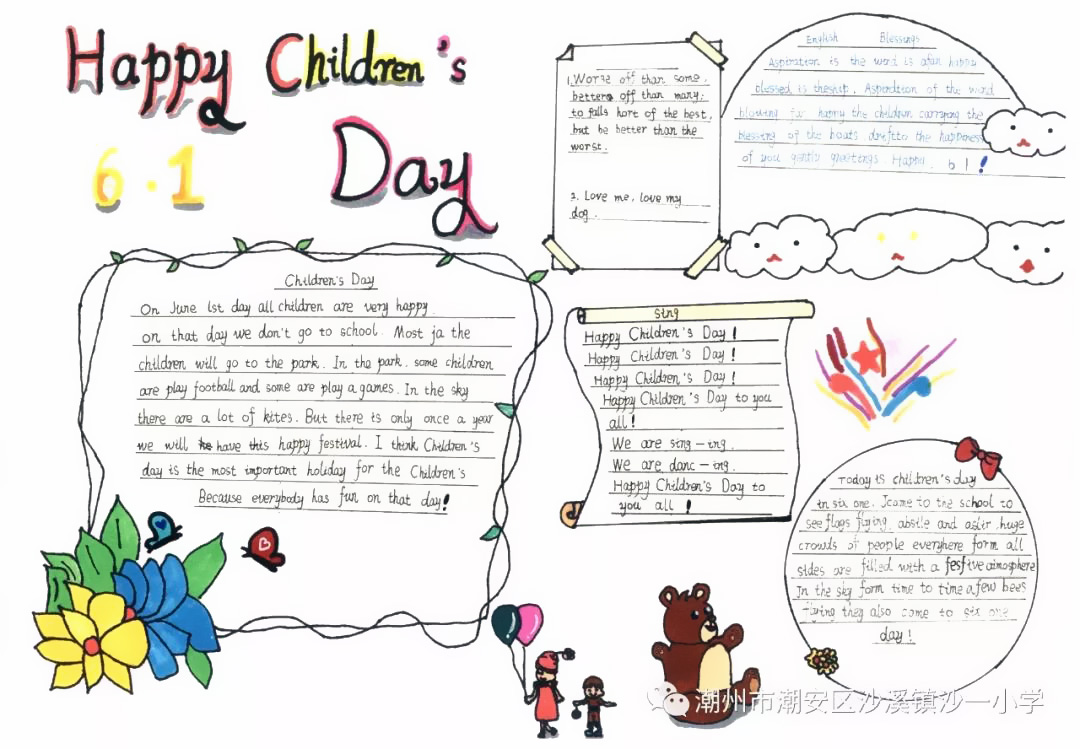 Happy Children's
Day
6.1
Children's Day
On June 1st day all children are very happy.
on that day we don't go to school. Most ja the
children will go to the park. In the park. some children
are play football and some are play a games. In the sky
there are a lot of kites. But there is only once a year
we will have this happy festival. I think Children's
day is the most important holiday for the Children's
Because everybody has fun on that day!
1. Worse off than some,
betters off than many;
to falls hort of the best,
but be better than the
worst.
2. Love me, love my
dog.
English Blessings
Aspiration is the wind is afan happy
blessed is theship. Aspiration of the wind
blowing for happy the children carrying the
blessing of the boats driftto the happiness
of you gently greetings. Happy. 6 1 !
sing
Happy Children's Day!
Happy Children's Day!
Happy Children's Day!
Happy Children's Day to you
all!
We are sing-ing.
We are danc-ing.
Happy Children's Day to
you all !
Today is children's day
in six one. Icame to the school to
see flags flying, abstle and astir, huge
crowds of people everyhere form all
sides are filled with a festive atmosphere
In the sky form time to time a few bees
flying they also come to six one
day!
潮州市潮安区沙溪镇沙一小学